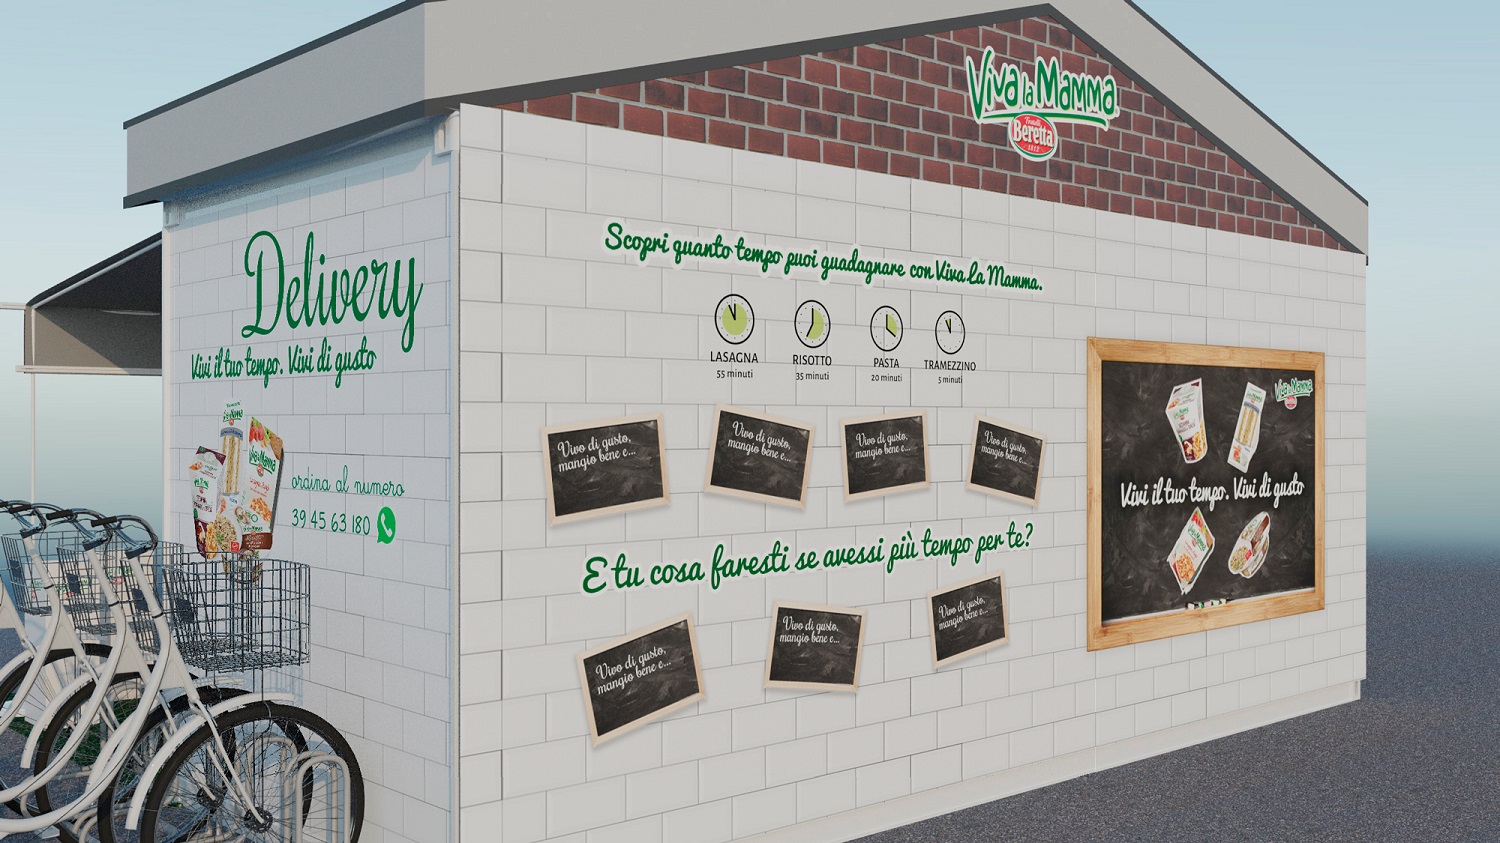 Viva la Mamma
Fratelli
Beretta
1812
Delivery
Vivi il tuo tempo. Vivi di gusto
ordina al numero
39 45 63 180
Scopri quanto tempo puoi guadagnare con Viva La Mamma.
LASAGNA
55 minuti
RISOTTO
35 minuti
PASTA
20 minuti
TRAMEZZINO
5 minuti
Vivo di gusto,
mangio bene e...
Vivo di gusto,
mangio bene e...
Vivo di gusto,
mangio bene e...
Vivo di gusto,
mangio bene e...
E tu cosa faresti se avessi più tempo per te?
Vivo di gusto,
mangio bene e...
Vivo di gusto,
mangio bene e...
Vivo di gusto,
mangio bene e...
Viva la Mamma
Vivi il tuo tempo. Vivi di gusto
Viva la Mamma